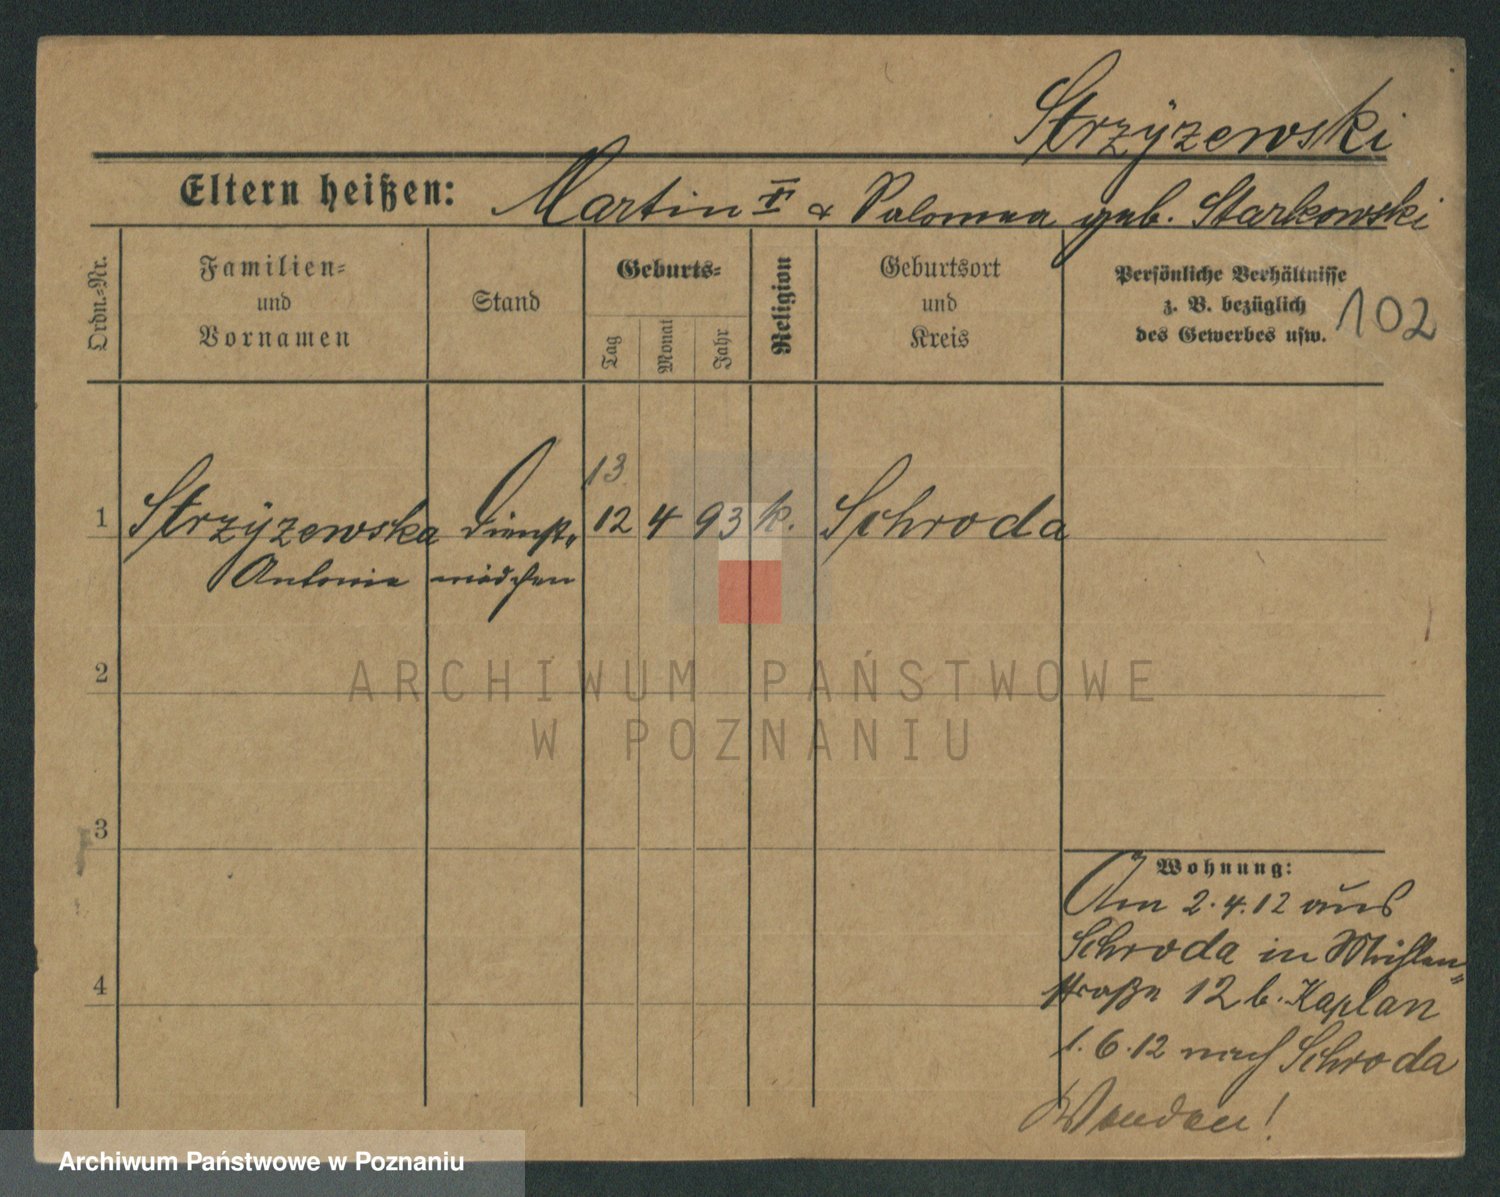 Strzÿzewski
Eltern heißen: Martin & Salomea geb. Starkowski
Ordn.-Nr.
Familien-
und
Vornamen
Stand
Geburts-
Tag
Monat
Jahr
Religion
Geburtsort
und
Kreis
Persönliche Verhältnisse
z. B. bezüglich
des Gewerbes usw.
102
13.
1 Strzÿzewska Dienst- 12 4 93 k. Schroda
Antonie mädchen
2
ARCHIWUM PAŃSTWOWE
W POZNANIU
3
Wohnung:
Am 2.4.12 aus
Schroda in Mühlen-
straße 12 b. Kaplan
4
1.6.12 nach Schroda
Wenden!
Archiwum Państwowe w Poznaniu